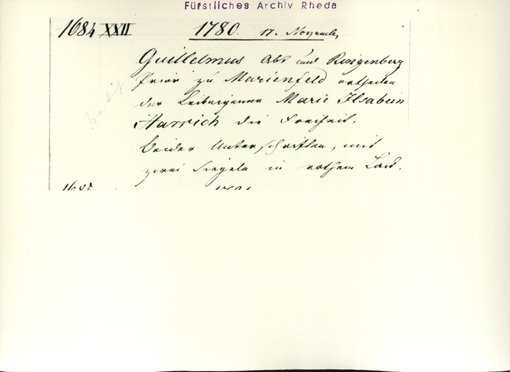 Fürstliches Archiv Rheda
1684 XXII 1780. 17. Novemb.
Guillelmus Abt und Ringenberg
Prior zu Marienfeld ertheilen
der Leibeigenen Marie Ilsabein
Harrich die Freiheit.
Beider Unterschriften, mit
zwei Siegeln in rothem Lack.